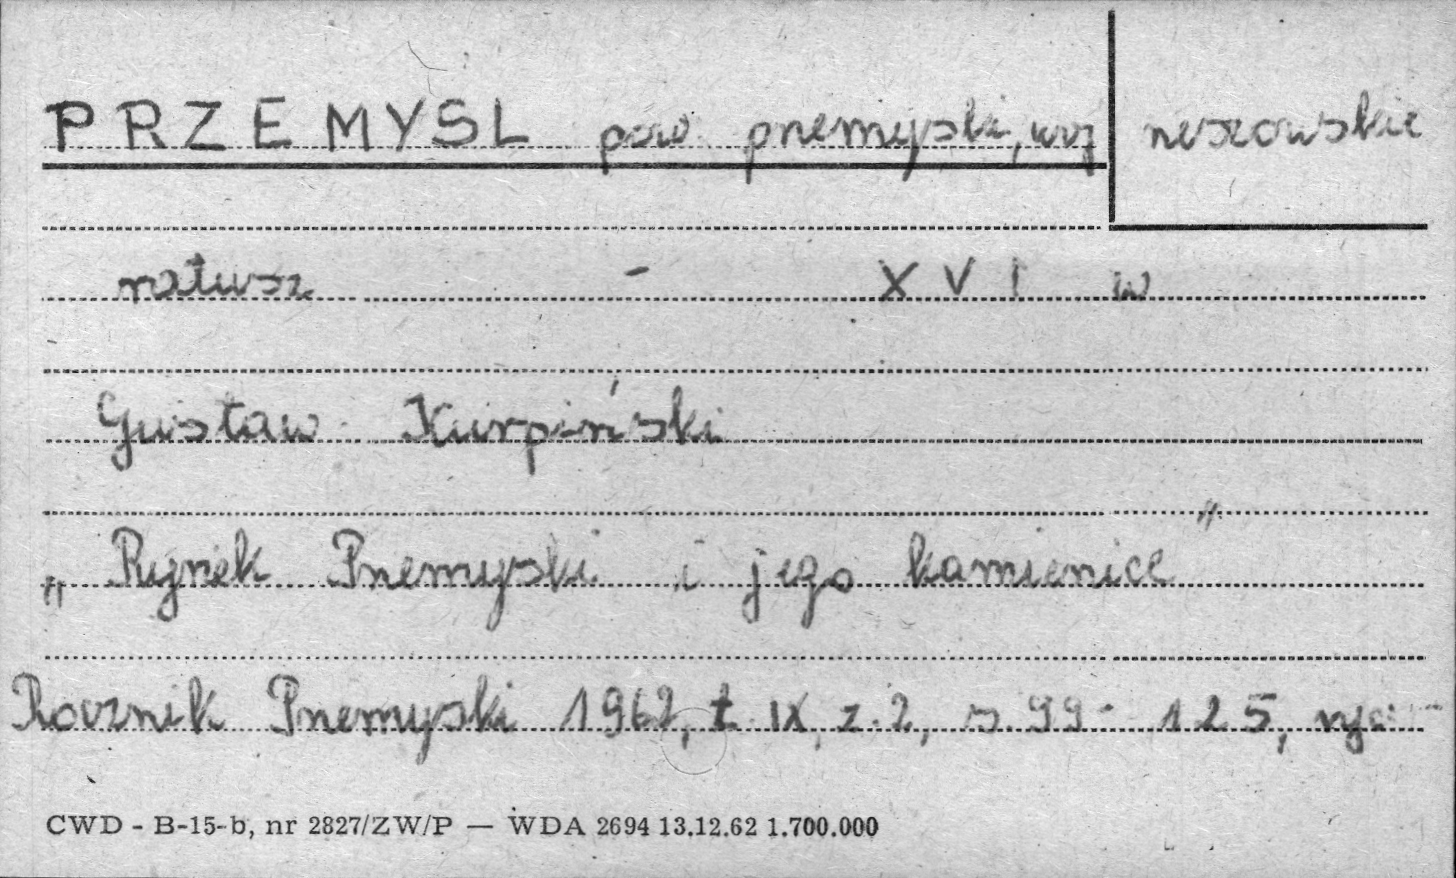 PRZEMYSL pow. przemyski, woj rzeszowskie
ratusz - XVI w
Gustaw Kurpiński
„Rynek Przemyski i jego kamienice"
Rocznik Przemyski 1962, t. IX, z. 2, s. 99 - 125, ryc.
CWD - B-15-b, nr 2827/ZW/P — WDA 2694 13.12.62 1.700.000